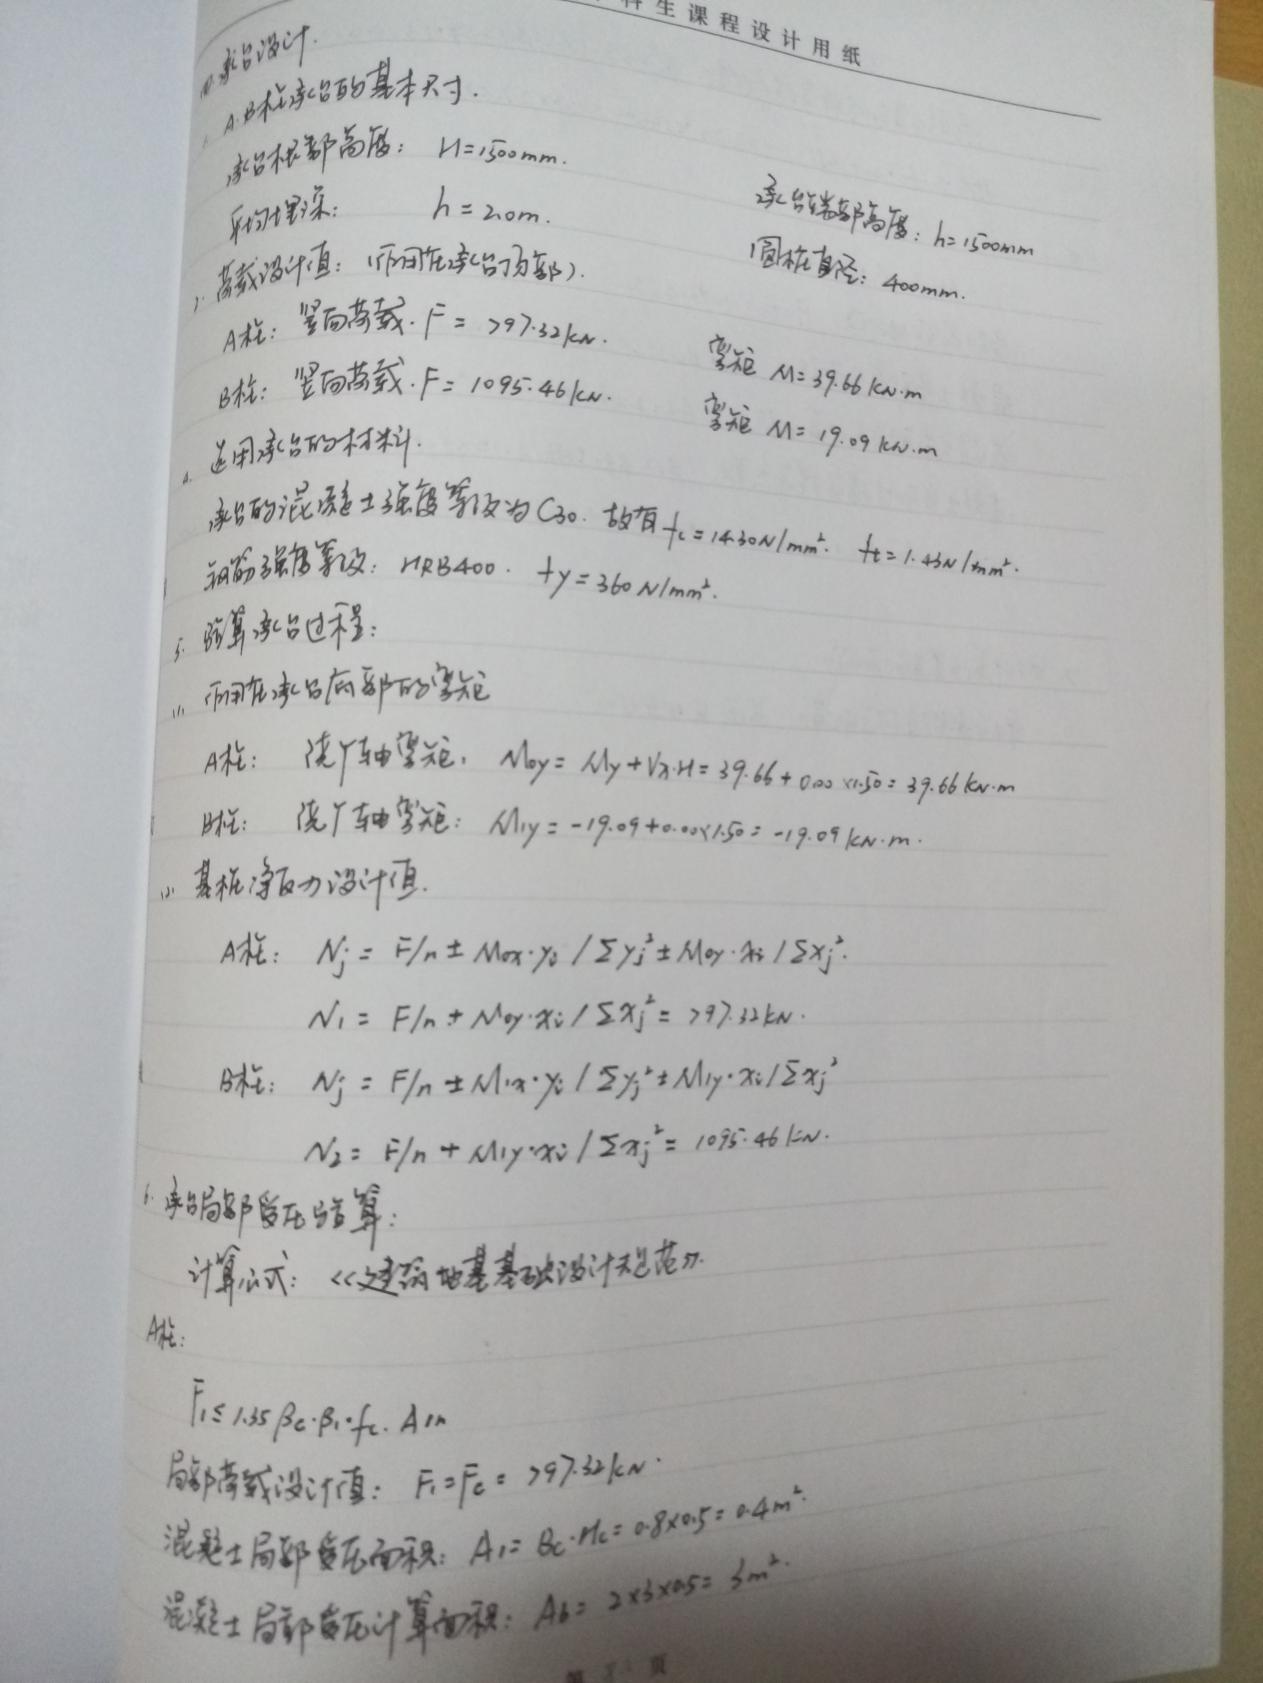 科生课程设计用纸
四. 承台设计.
A.B柱承台的基本尺寸.
承台根部高度: H=1500mm. 承台端部高度: h=1500mm
平均埋深: h=2.0m. 圆桩直径: 400mm.
荷载设计值: (作用在承台顶部).
A柱: 竖向荷载. F=797.32kN. 弯矩 M=39.66kN·m
B柱: 竖向荷载. F=1095.46kN. 弯矩 M=19.09kN·m
4. 选用承台的材料.
承台的混凝土强度等级为C30. 故有fc=14.30N/mm². ft=1.43N/mm².
钢筋强度等级: HRB400. fy=360N/mm².
5. 验算承台过程:
(1) 作用在承台底部的弯矩
A柱: 绕Y轴弯矩. M0y=My+Vx·H=39.66+0.00×1.50=39.66kN·m
B柱: 绕Y轴弯矩: M1y=-19.09+0.00×1.50=-19.09kN·m.
(2) 基桩净反力设计值.
A柱: Nj=F/n±M0x·yi/Σyj²±M0y·xi/Σxj².
N1=F/n+M0y·xi/Σxj²=797.32kN.
B柱: Nj=F/n±M1x·yi/Σyj²±M1y·xi/Σxj²
N2=F/n+M1y·xi/Σxj²=1095.46kN.
6. 承台局部受压验算:
计算公式: 《建筑地基基础设计规范》.
A柱:
F1≤1.35βc·β1·fc·A1n
局部荷载设计值: F1=Fc=797.32kN.
混凝土局部受压面积: A1=Bc·Hc=0.8×0.5=0.4m².
混凝土局部受压计算面积: Ab=2×3×0.5=3m².
第 页